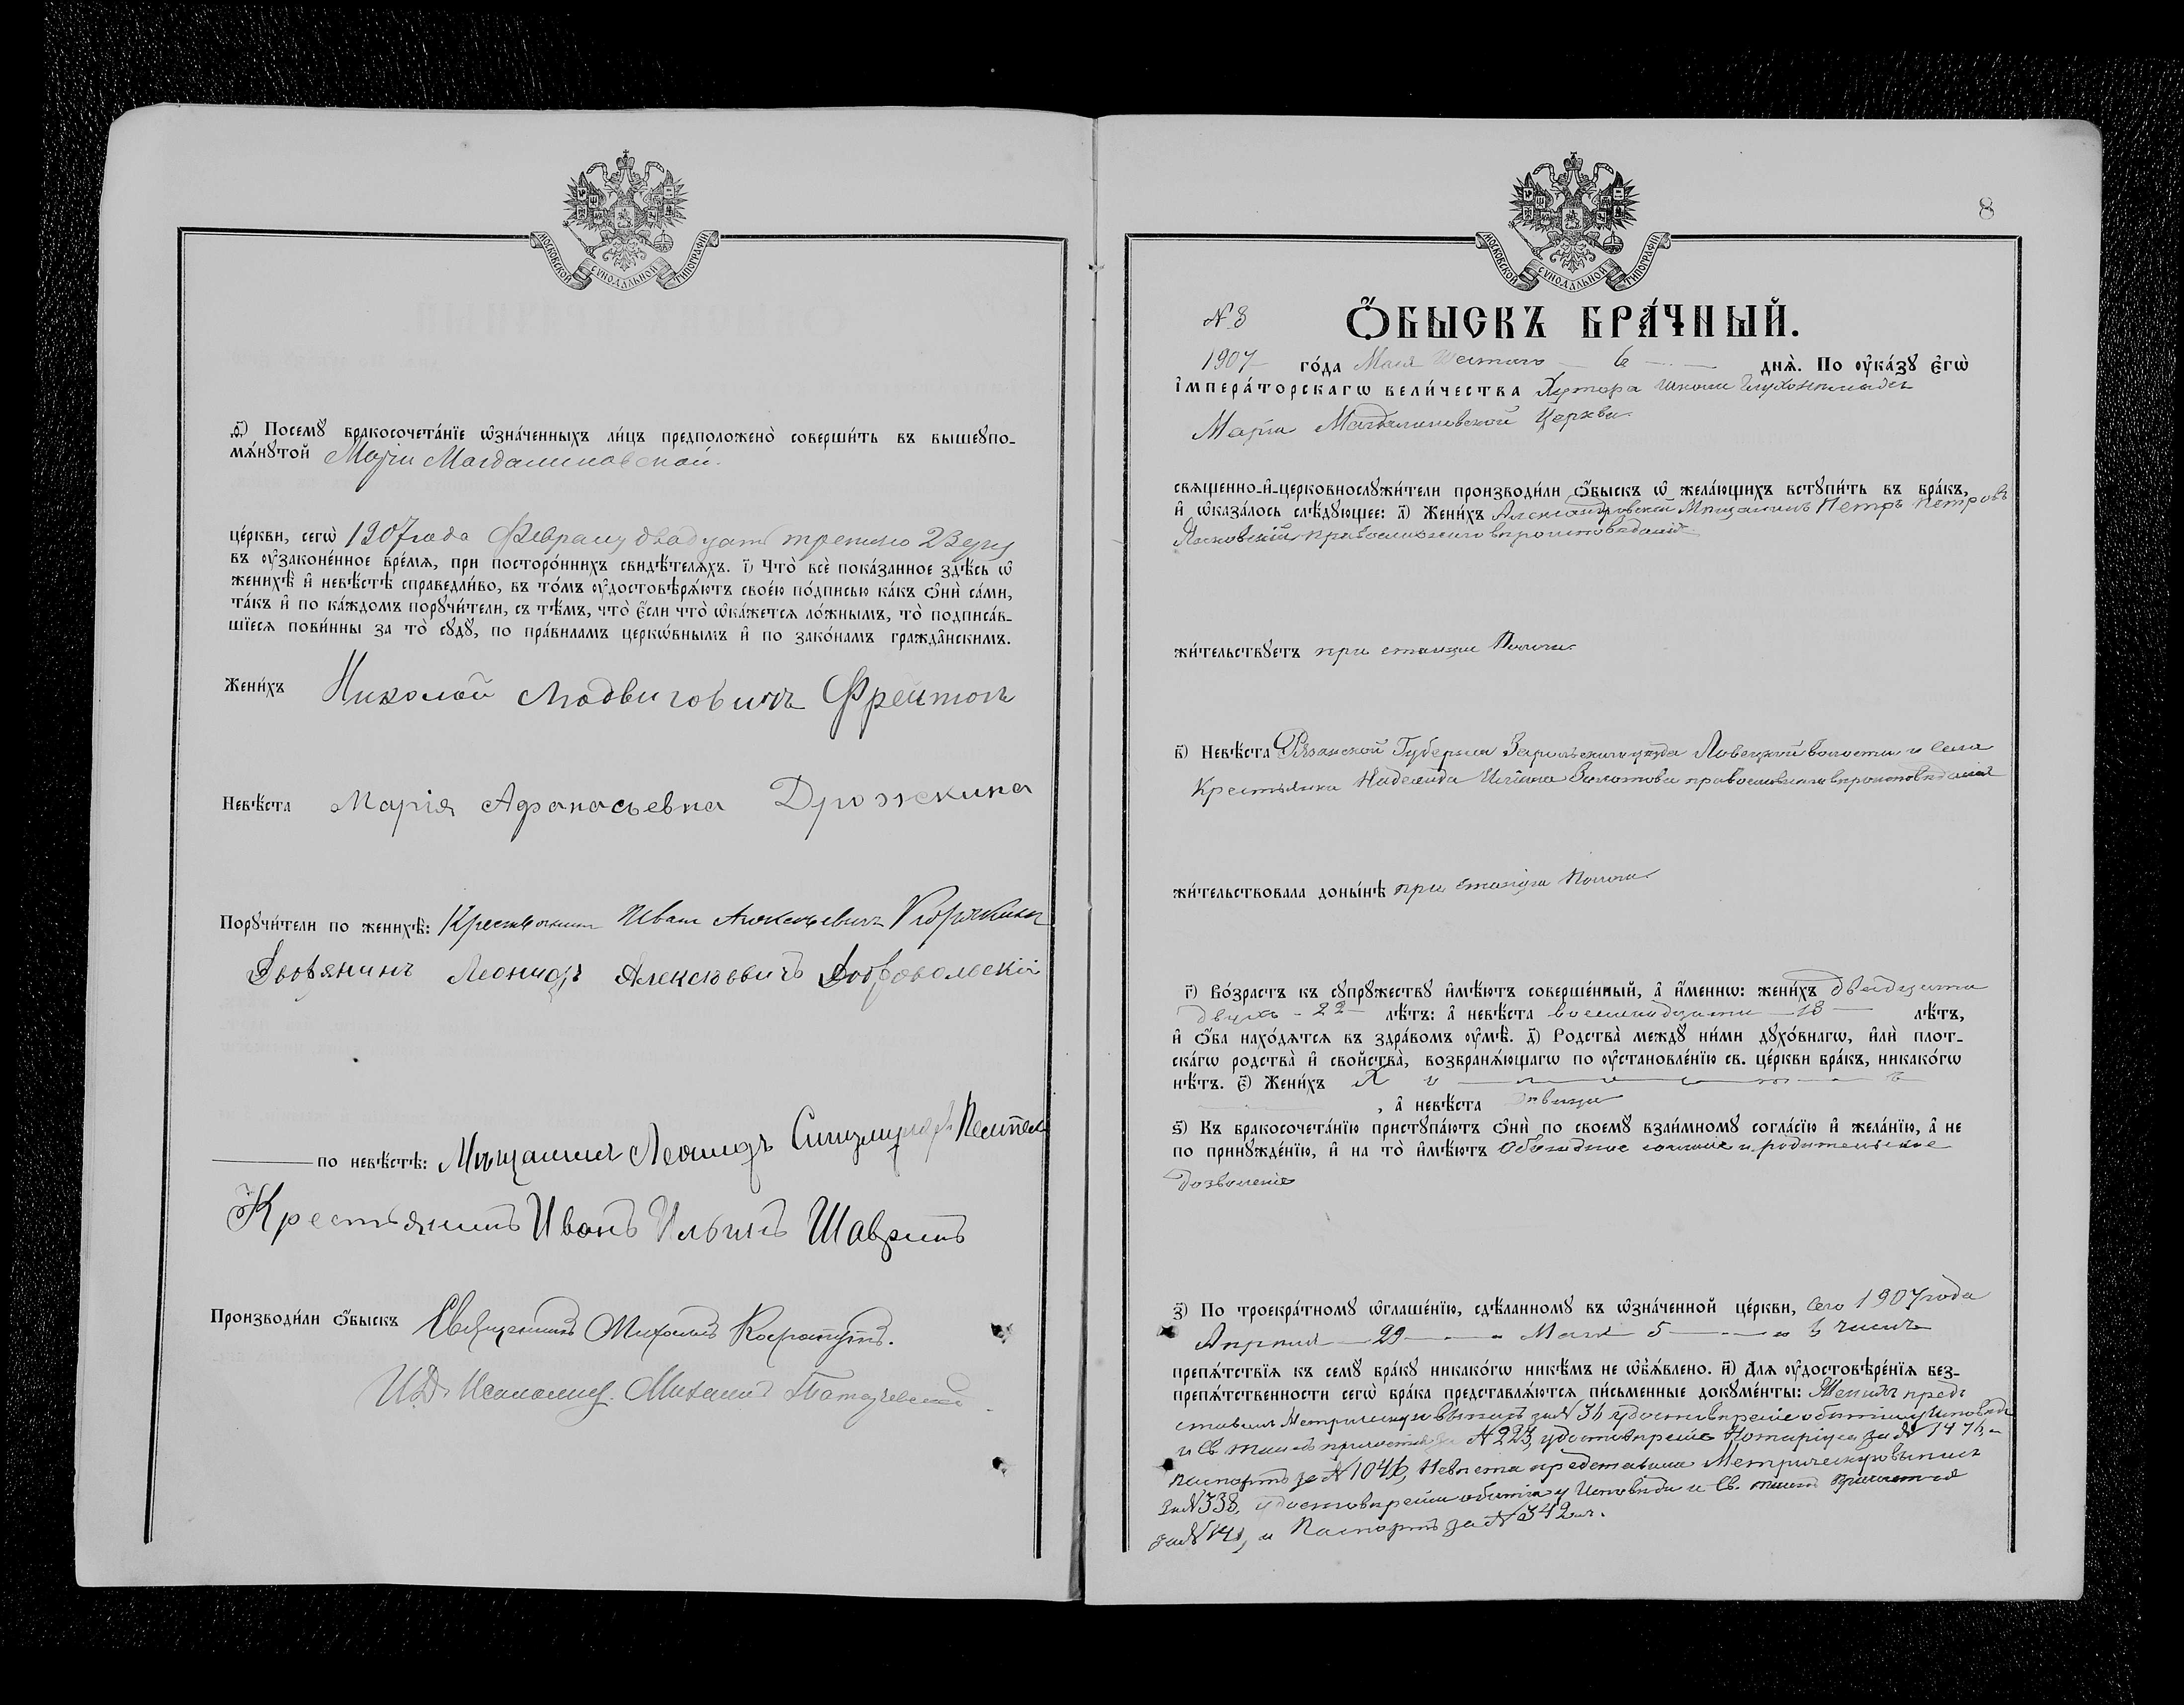 МОСКОВСКОЙ СѴНОДАЛЬНОЙ ТИПОГРАФІИ
д҃) Посемꙋ̀ бракосочета́нїе ѡ҆зна́ченныхъ ли́цъ предположено̀ соверши́ть въ вышеꙋпо-
мѧ́нꙋтой Маріи Магдалиновской.
це́ркви, сегѡ̀ 1907 года Февраля двадцать третьяго 23 дня
въ ᲂу҆зако́ненное вре́мѧ, при посторо́ннихъ свидѣ́телѧхъ. і҃) Что̀ всѐ пока́занное здѣ́сь ѡ҆
женихѣ̀ и҆ невѣ́стѣ справедли́во, въ то́мъ ᲂу҆достовѣрѧ́ютъ свое́ю по́дписью ка́къ ѻ҆нѝ са́ми,
та́къ и҆ по ка́ждомъ порꙋчи́тели, съ тѣ́мъ, что̀ є҆́сли что̀ ѡ҆ка́жетсѧ ло́жнымъ, то̀ подписа́в-
шїесѧ пови́нны за то̀ сꙋдꙋ̀, по пра́виламъ церко́внымъ и҆ по зако́намъ гражда̑нскимъ.
Жени́хъ Николай Людвиговичъ Фрейтонъ
Невѣ́ста Марія Афонасьевна Дрожжина
Порꙋчи́тели по женихѣ̀: Крестьянинъ Иванъ Алексѣевичъ Корякинъ
Дворянинъ Леонидъ Алексѣевичъ Добровольскій
по невѣ́стѣ: Мѣщанинъ Леонидъ
Крестьянинъ Иванъ Ильинъ Шавринъ
Производи́ли ѻ҆́быскъ Священникъ Михаилъ
И.Д. Псаломщ. Михаилъ
8
МОСКОВСКОЙ СѴНОДАЛЬНОЙ ТИПОГРАФІИ
N 8 Ѻ҆́БЫСКЪ БРА́ЧНЫЙ.
1907 го́да Мая Шестаго 6 днѧ̀. По ᲂу҆ка́зꙋ є҆гѡ̀
і҆мпера́торскагѡ вели́чества Хутора школы Глухонѣмыхъ
Маріи Магдалиновской Церкви
свѧщенно-и҆-церковнослꙋжи́тели производи́ли ѻ҆́быскъ ѡ҆ жела́ющихъ встꙋпи́ть въ бра́къ,
и҆ ѡ҆каза́лось слѣ́дꙋющее: а҃) Жени́хъ Александровскій Мѣщанинъ Петръ Петровъ
православнаго вѣроисповѣданія
жи́тельствꙋетъ при станціи Пологи
в҃) Невѣ́ста Рязанской Губерніи Зарайскаго уѣзда Ловецкой волости и села
Крестьянка Надежда Золотова православнаго вѣроисповѣданія
жи́тельствовала доны́нѣ при станціи Пологи
г҃) Во́зрастъ къ сꙋпрꙋ́жествꙋ и҆мѣ́ютъ соверше́нный, а҆ и҆́меннѡ: жени́хъ двадцати
двухъ - 22 - лѣ́тъ: а҆ невѣ́ста восемнадцати 18 лѣ́тъ,
и҆ ѻ҆́ба нахо́дѧтсѧ въ здра́вомъ ᲂу҆мѣ̀. д҃) Родства̀ междꙋ̀ ни́ми дꙋхо́внагѡ, и҆лѝ плот-
ска́гѡ родства̀ и҆ свойства̀, возбранѧ́ющагѡ по ᲂу҆становле́нїю св. це́ркви бра́къ, никако́гѡ
нѣ́тъ. є҃) Жени́хъ Холостъ
, а҆ невѣ́ста Дѣвица
ѕ҃) Къ бракосочета́нїю пристꙋпа́ютъ ѻ҆нѝ по своемꙋ̀ взаи́мномꙋ согла́сїю и҆ жела́нїю, а҆ не
по принꙋжде́нїю, и҆ на то̀ и҆мѣ́ютъ Обоюдное согласіе и родительское
дозволеніе
з҃) По троекра́тномꙋ ѡ҆глаше́нїю, сдѣ́ланномꙋ въ ѡ҆зна́ченной це́ркви, Сего 1907 года
Апрѣля 29 Мая 5 и 6 числъ
препѧ́тствїѧ къ семꙋ̀ бра́кꙋ никако́гѡ никѣ́мъ не ѡ҆б̾ѧ́влено. и҃) Длѧ ᲂу҆достовѣре́нїѧ без-
препѧ́тственности сегѡ̀ бра́ка представлѧ́ютсѧ пи́сьменные докꙋме́нты: Женихъ пред-
ставилъ Метрическую выпись за N 31 удостовѣреніе о бытіи у Исповѣди
и Св. Таинъ причастія за N 223, удостовѣреніе Нотаріуса за N и
паспортъ за N Невѣста представила Метрическую выпись
за N 338, удостовѣреніе о бытіи у Исповѣди и Св. таинъ причастія
за N 141, и Паспортъ за N 342